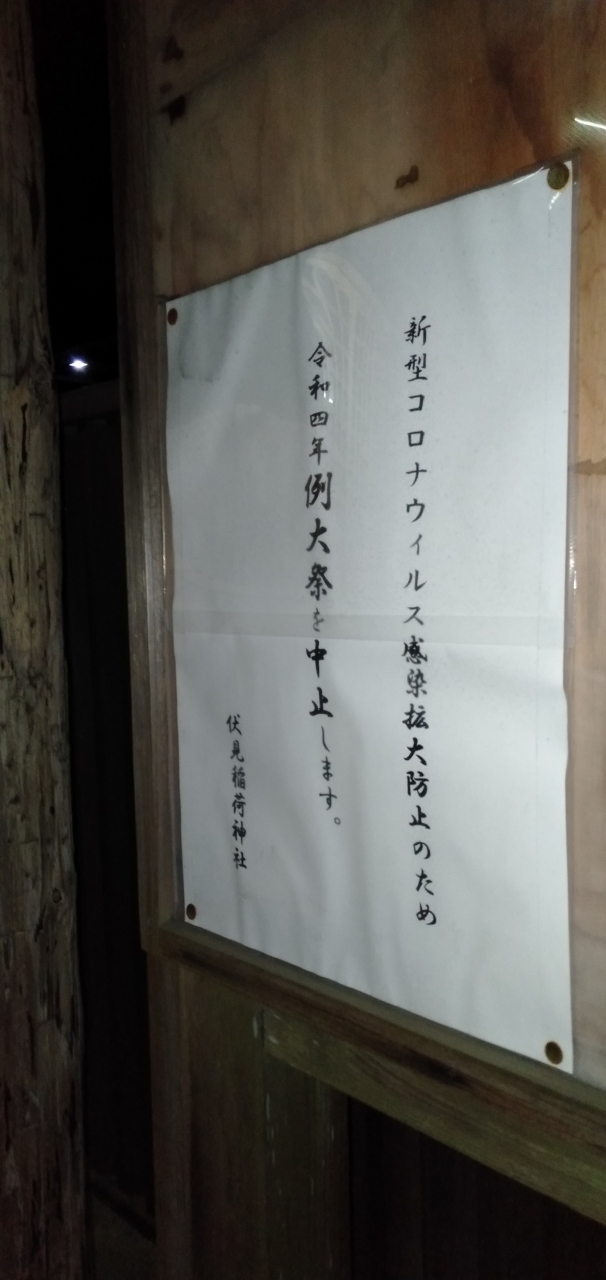 新型コロナウィルス感染拡大防止のため
令和四年例大祭を中止します。
伏見稲荷神社